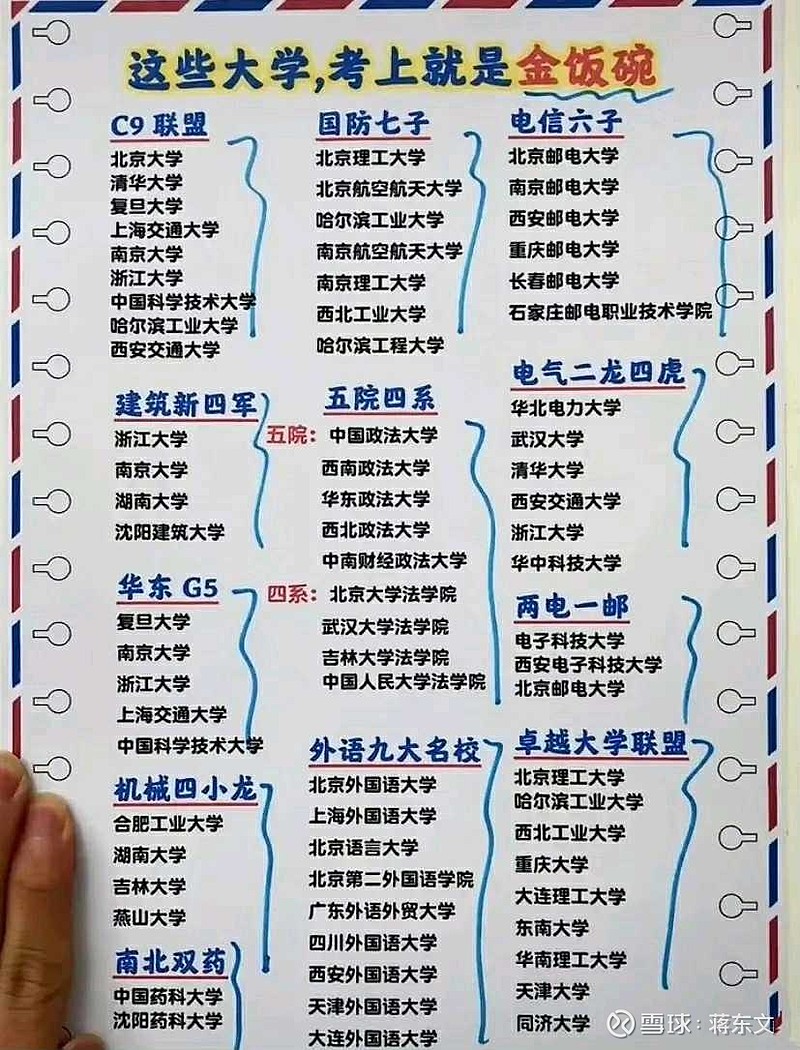 这些大学,考上就是金饭碗
C9 联盟
北京大学
清华大学
复旦大学
上海交通大学
南京大学
浙江大学
中国科学技术大学
哈尔滨工业大学
西安交通大学
建筑新四军
浙江大学
南京大学
湖南大学
沈阳建筑大学
华东 G5
复旦大学
南京大学
浙江大学
上海交通大学
中国科学技术大学
机械四小龙
合肥工业大学
湖南大学
吉林大学
燕山大学
南北双药
中国药科大学
沈阳药科大学
国防七子
北京理工大学
北京航空航天大学
哈尔滨工业大学
南京航空航天大学
南京理工大学
西北工业大学
哈尔滨工程大学
五院四系
五院：中国政法大学
西南政法大学
华东政法大学
西北政法大学
中南财经政法大学
四系：北京大学法学院
武汉大学法学院
吉林大学法学院
中国人民大学法学院
外语九大名校
北京外国语大学
上海外国语大学
北京语言大学
北京第二外国语学院
广东外语外贸大学
四川外国语大学
西安外国语大学
天津外国语大学
大连外国语大学
电信六子
北京邮电大学
南京邮电大学
西安邮电大学
重庆邮电大学
长春邮电大学
石家庄邮电职业技术学院
电气二龙四虎
华北电力大学
武汉大学
清华大学
西安交通大学
浙江大学
华中科技大学
两电一邮
电子科技大学
西安电子科技大学
北京邮电大学
卓越大学联盟
北京理工大学
哈尔滨工业大学
西北工业大学
重庆大学
大连理工大学
东南大学
华南理工大学
天津大学
同济大学
雪球：蒋东文